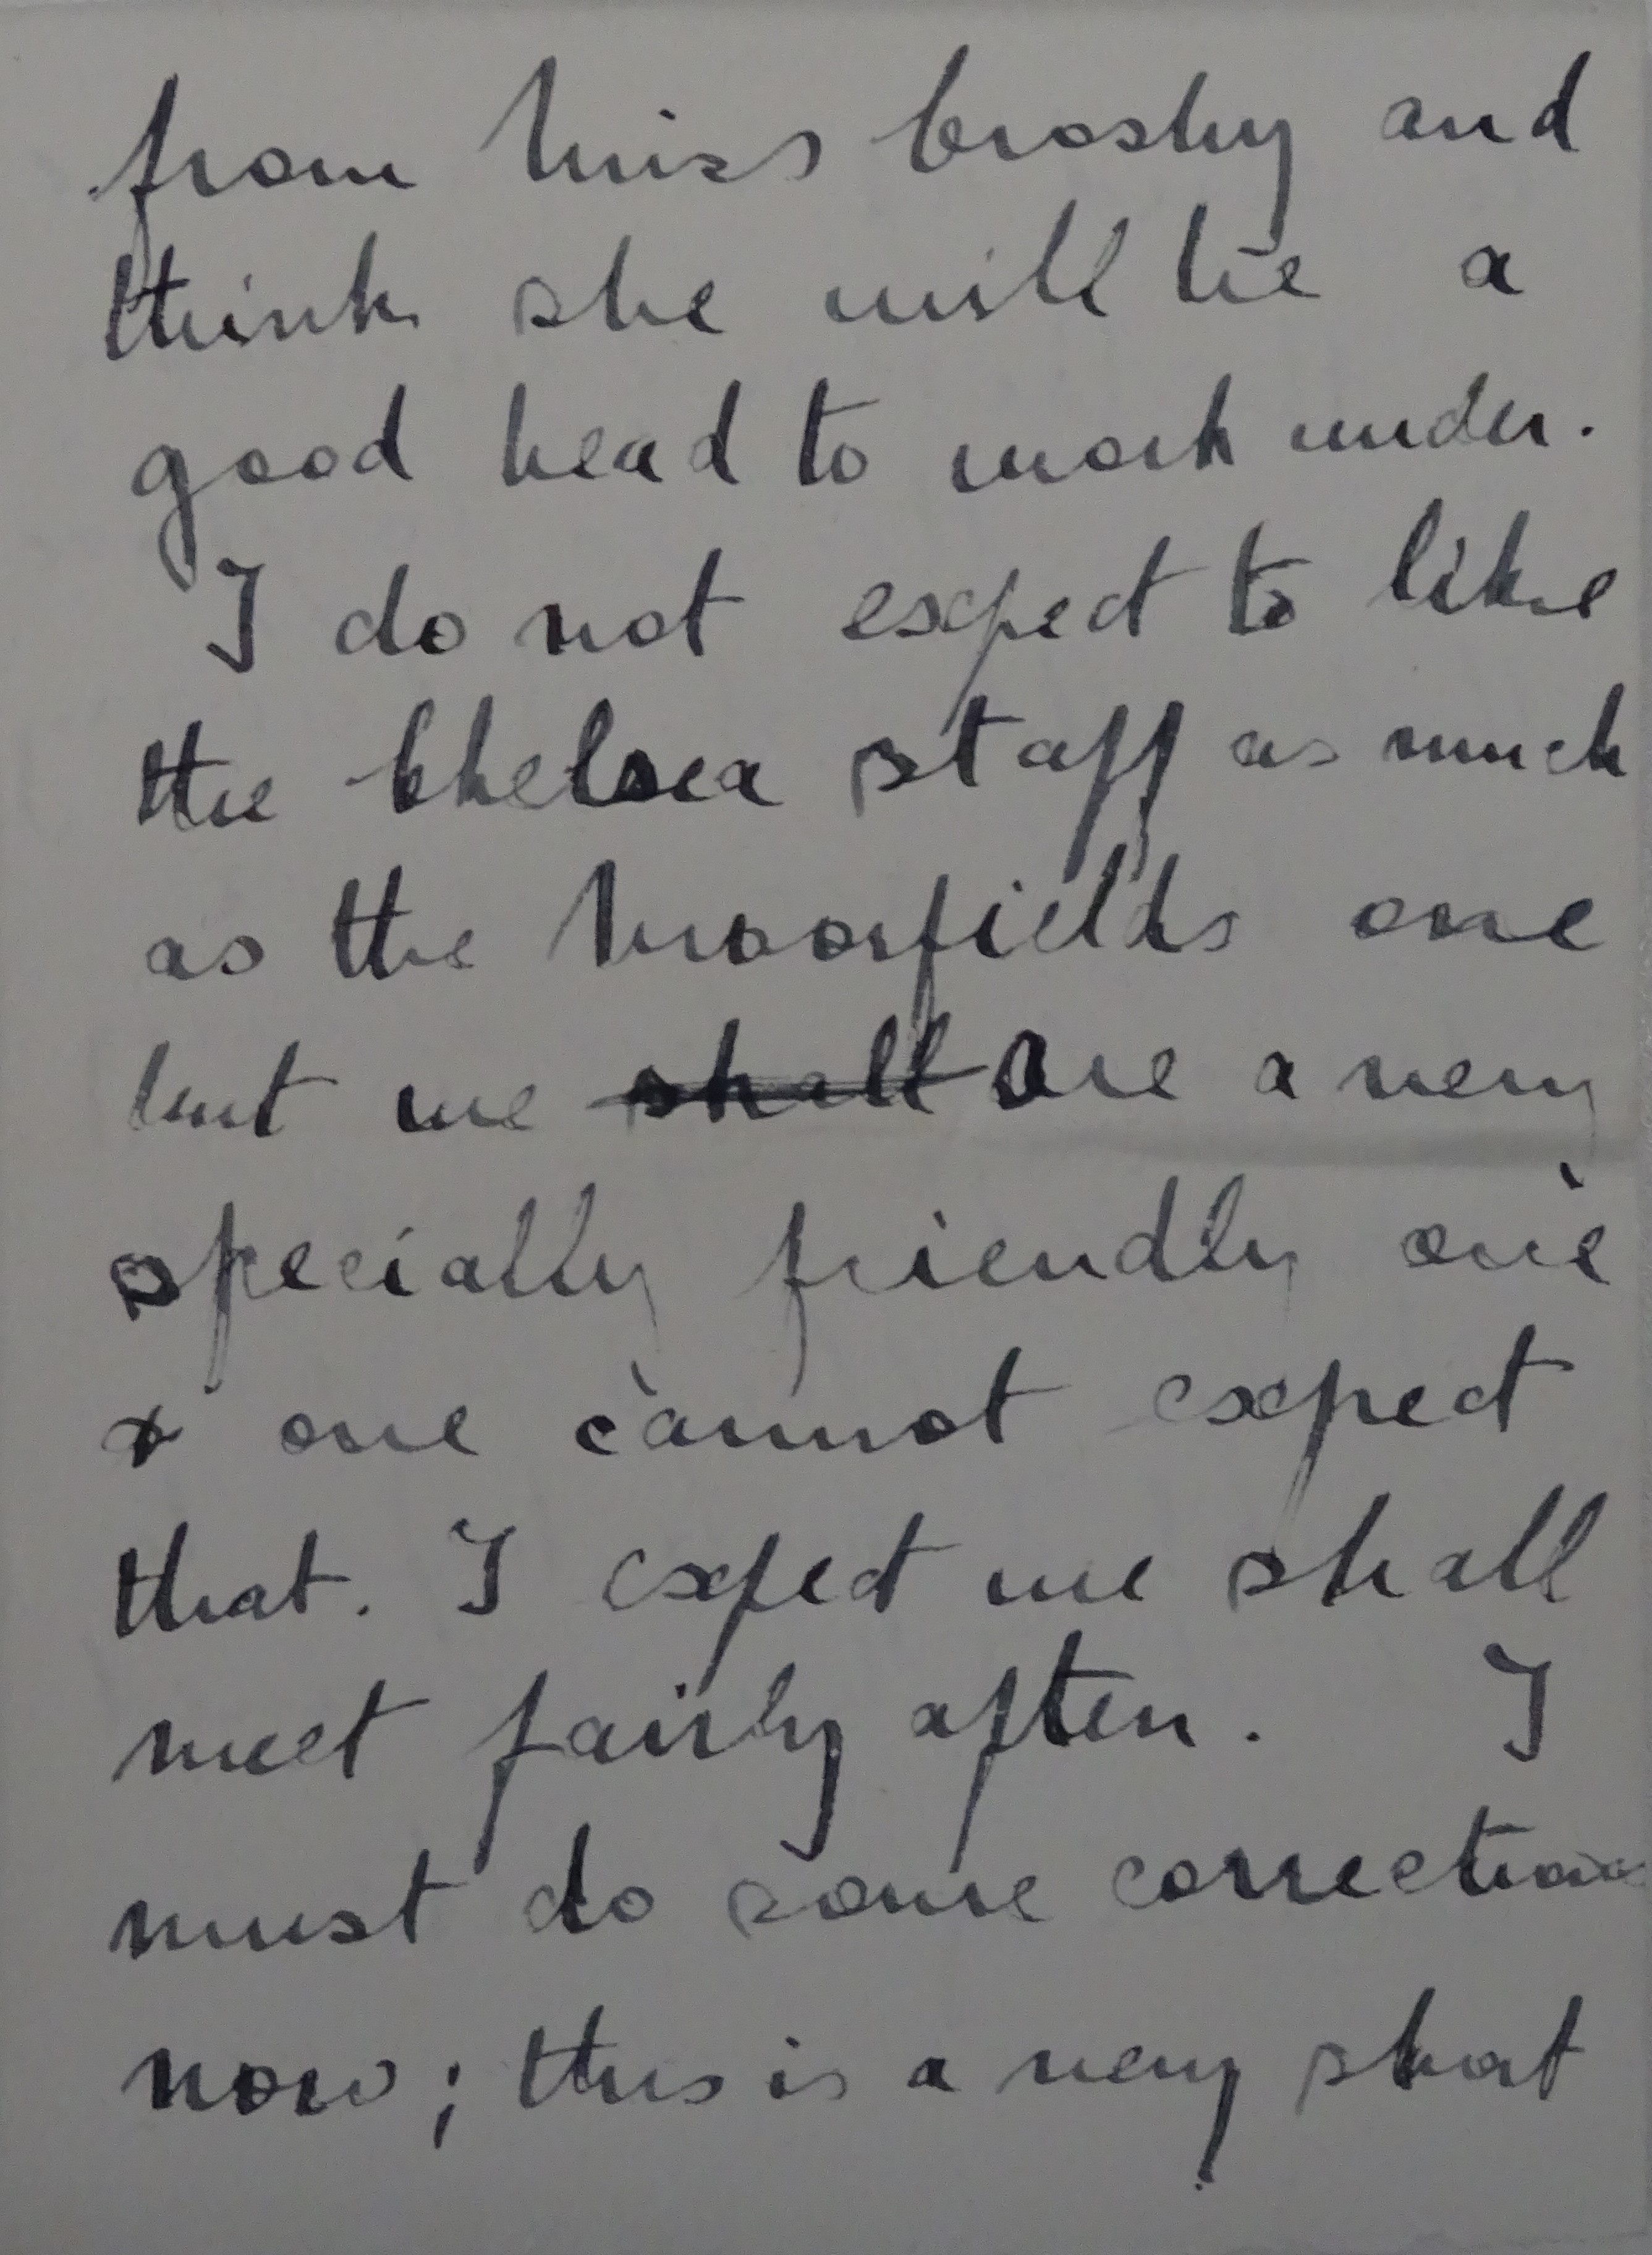 from Miss Crosby and
think she will be a
good head to work under.
I do not expect to like
the Chelsea staff as much
as the Moorfields one
but we ~~shall~~ are a very
specially friendly one
& one cannot expect
that. I expect we shall
meet fairly often. I
must do some corrections
now; this is a very short